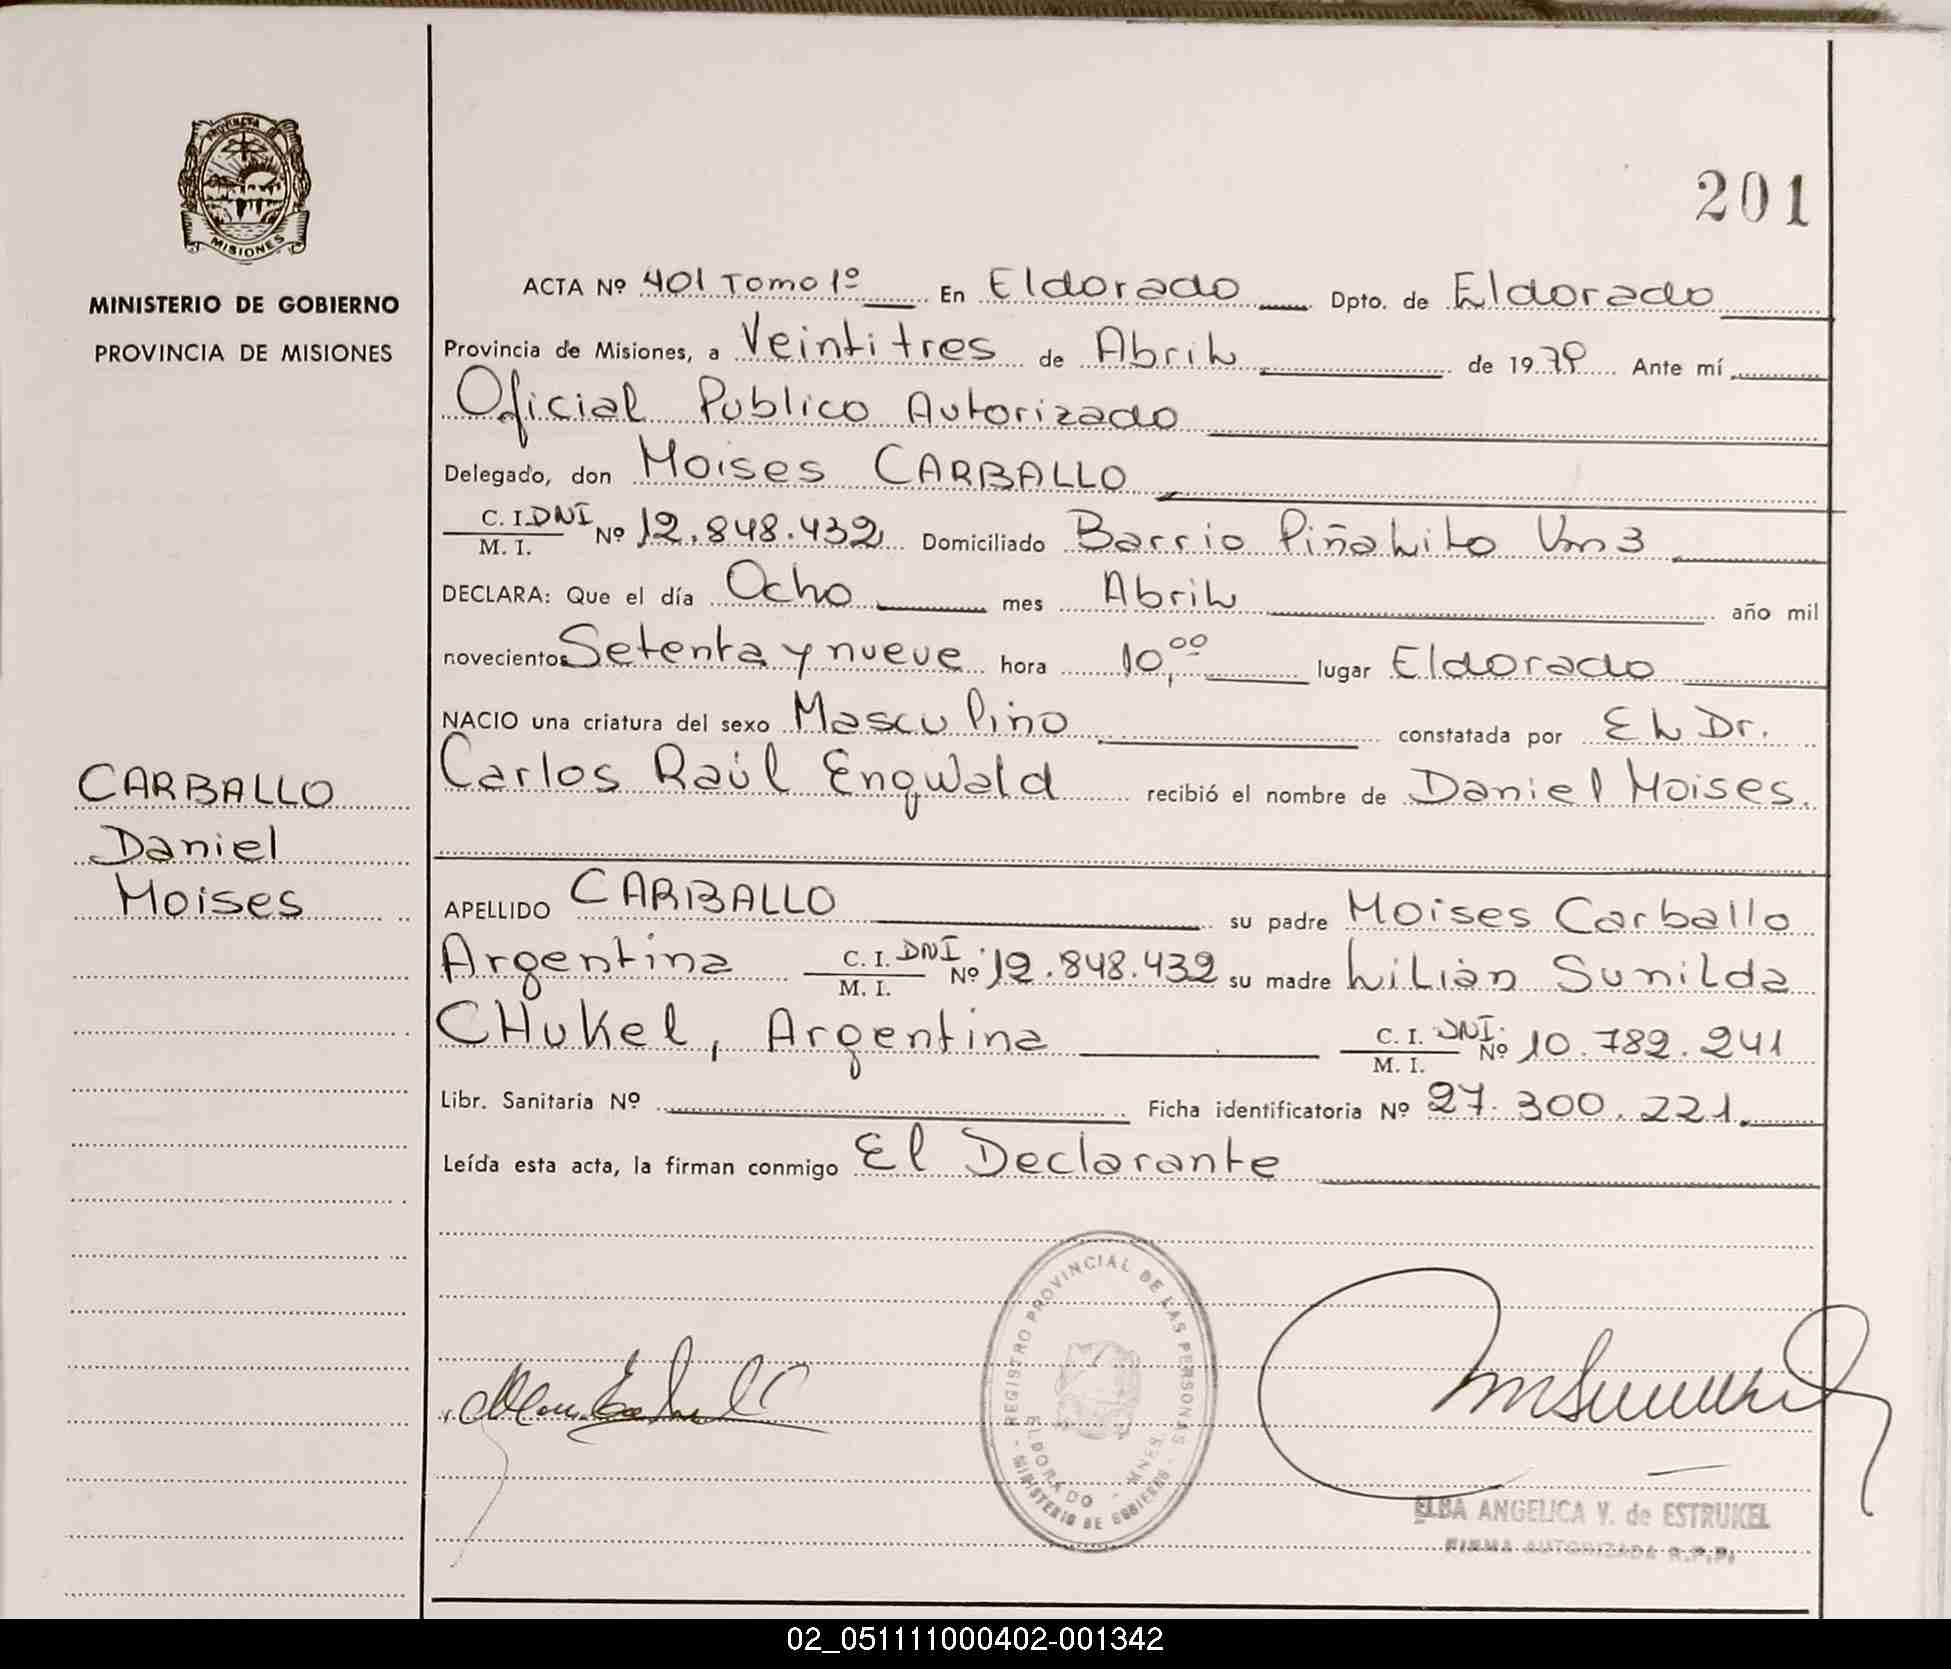 PROVINCIA
MISIONES
MINISTERIO DE GOBIERNO
PROVINCIA DE MISIONES
CARBALLO
Daniel
Moises
201
ACTA Nº 401 Tomo 1º En Eldorado Dpto. de Eldorado
Provincia de Misiones, a Veintitres de Abril de 1979 Ante mí
Oficial Publico Autorizado
Delegado, don Moises CARBALLO
C. I. DNI Nº 12.848.432 Domiciliado Barrio Piñalito Km 3
M. I.
DECLARA: Que el día Ocho mes Abril año mil
novecientos Setenta y nueve hora 10,00 lugar Eldorado
NACIO una criatura del sexo Masculino constatada por El Dr.
Carlos Raúl Engwald recibió el nombre de Daniel Moises.
APELLIDO CARBALLO su padre Moises Carballo
Argentina C. I. DNI Nº 12.848.432 su madre Lilián Sunilda
M. I.
CHukel, Argentina C. I. DNI. Nº 10.782.241
M. I.
Libr. Sanitaria Nº Ficha identificatoria Nº 27.300.221.
Leída esta acta, la firman conmigo El Declarante
REGISTRO PROVINCIAL DE LAS PERSONAS
ELDORADO - MNES.
- MINISTERIO DE GOBIERNO -
ELBA ANGELICA V. de ESTRUKEL
FIRMA AUTORIZADA R.P.P.
02_051111000402-001342